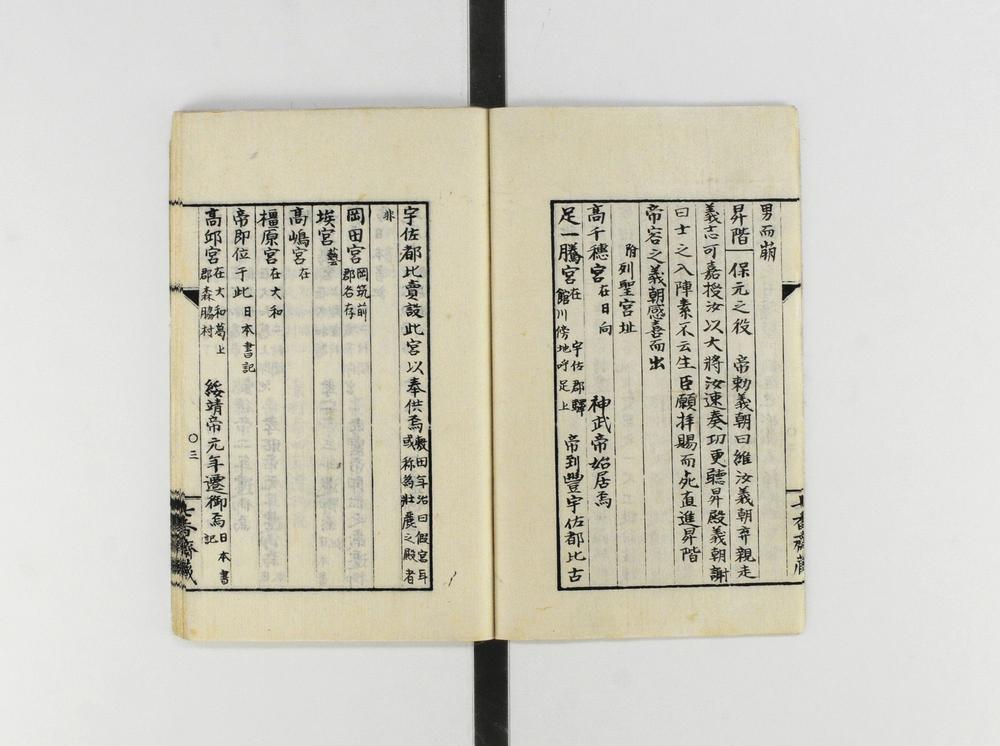 男而崩
昇階 保元之役 帝勅義朝曰維汝義朝弃親走
義志可嘉授汝以大將汝速奏功更聽昇殿義朝謝
曰士之入陣素不云生臣願拝賜而死直進昇階
帝容之義朝感喜而出
附 列聖宮址
高千穗宮在日向 神武帝始居焉
足一騰宮在 宇佐郡驛
館川傍地呼足上 帝到豐宇佐都比古
七香齋藏
宇佐都比賣設此宮以奉供焉 敷田年治曰假宮耳
或称為壯麗之殿者
非
岡田宮 筑前
岡郡名存
埃宮 在
藝
高嶋宮在
橿原宮在大和
帝即位于此日本書記
高邱宮 在大和葛上
郡森脇村 綏靖帝元年遷御焉 日本書
記
〇三
七香齋藏